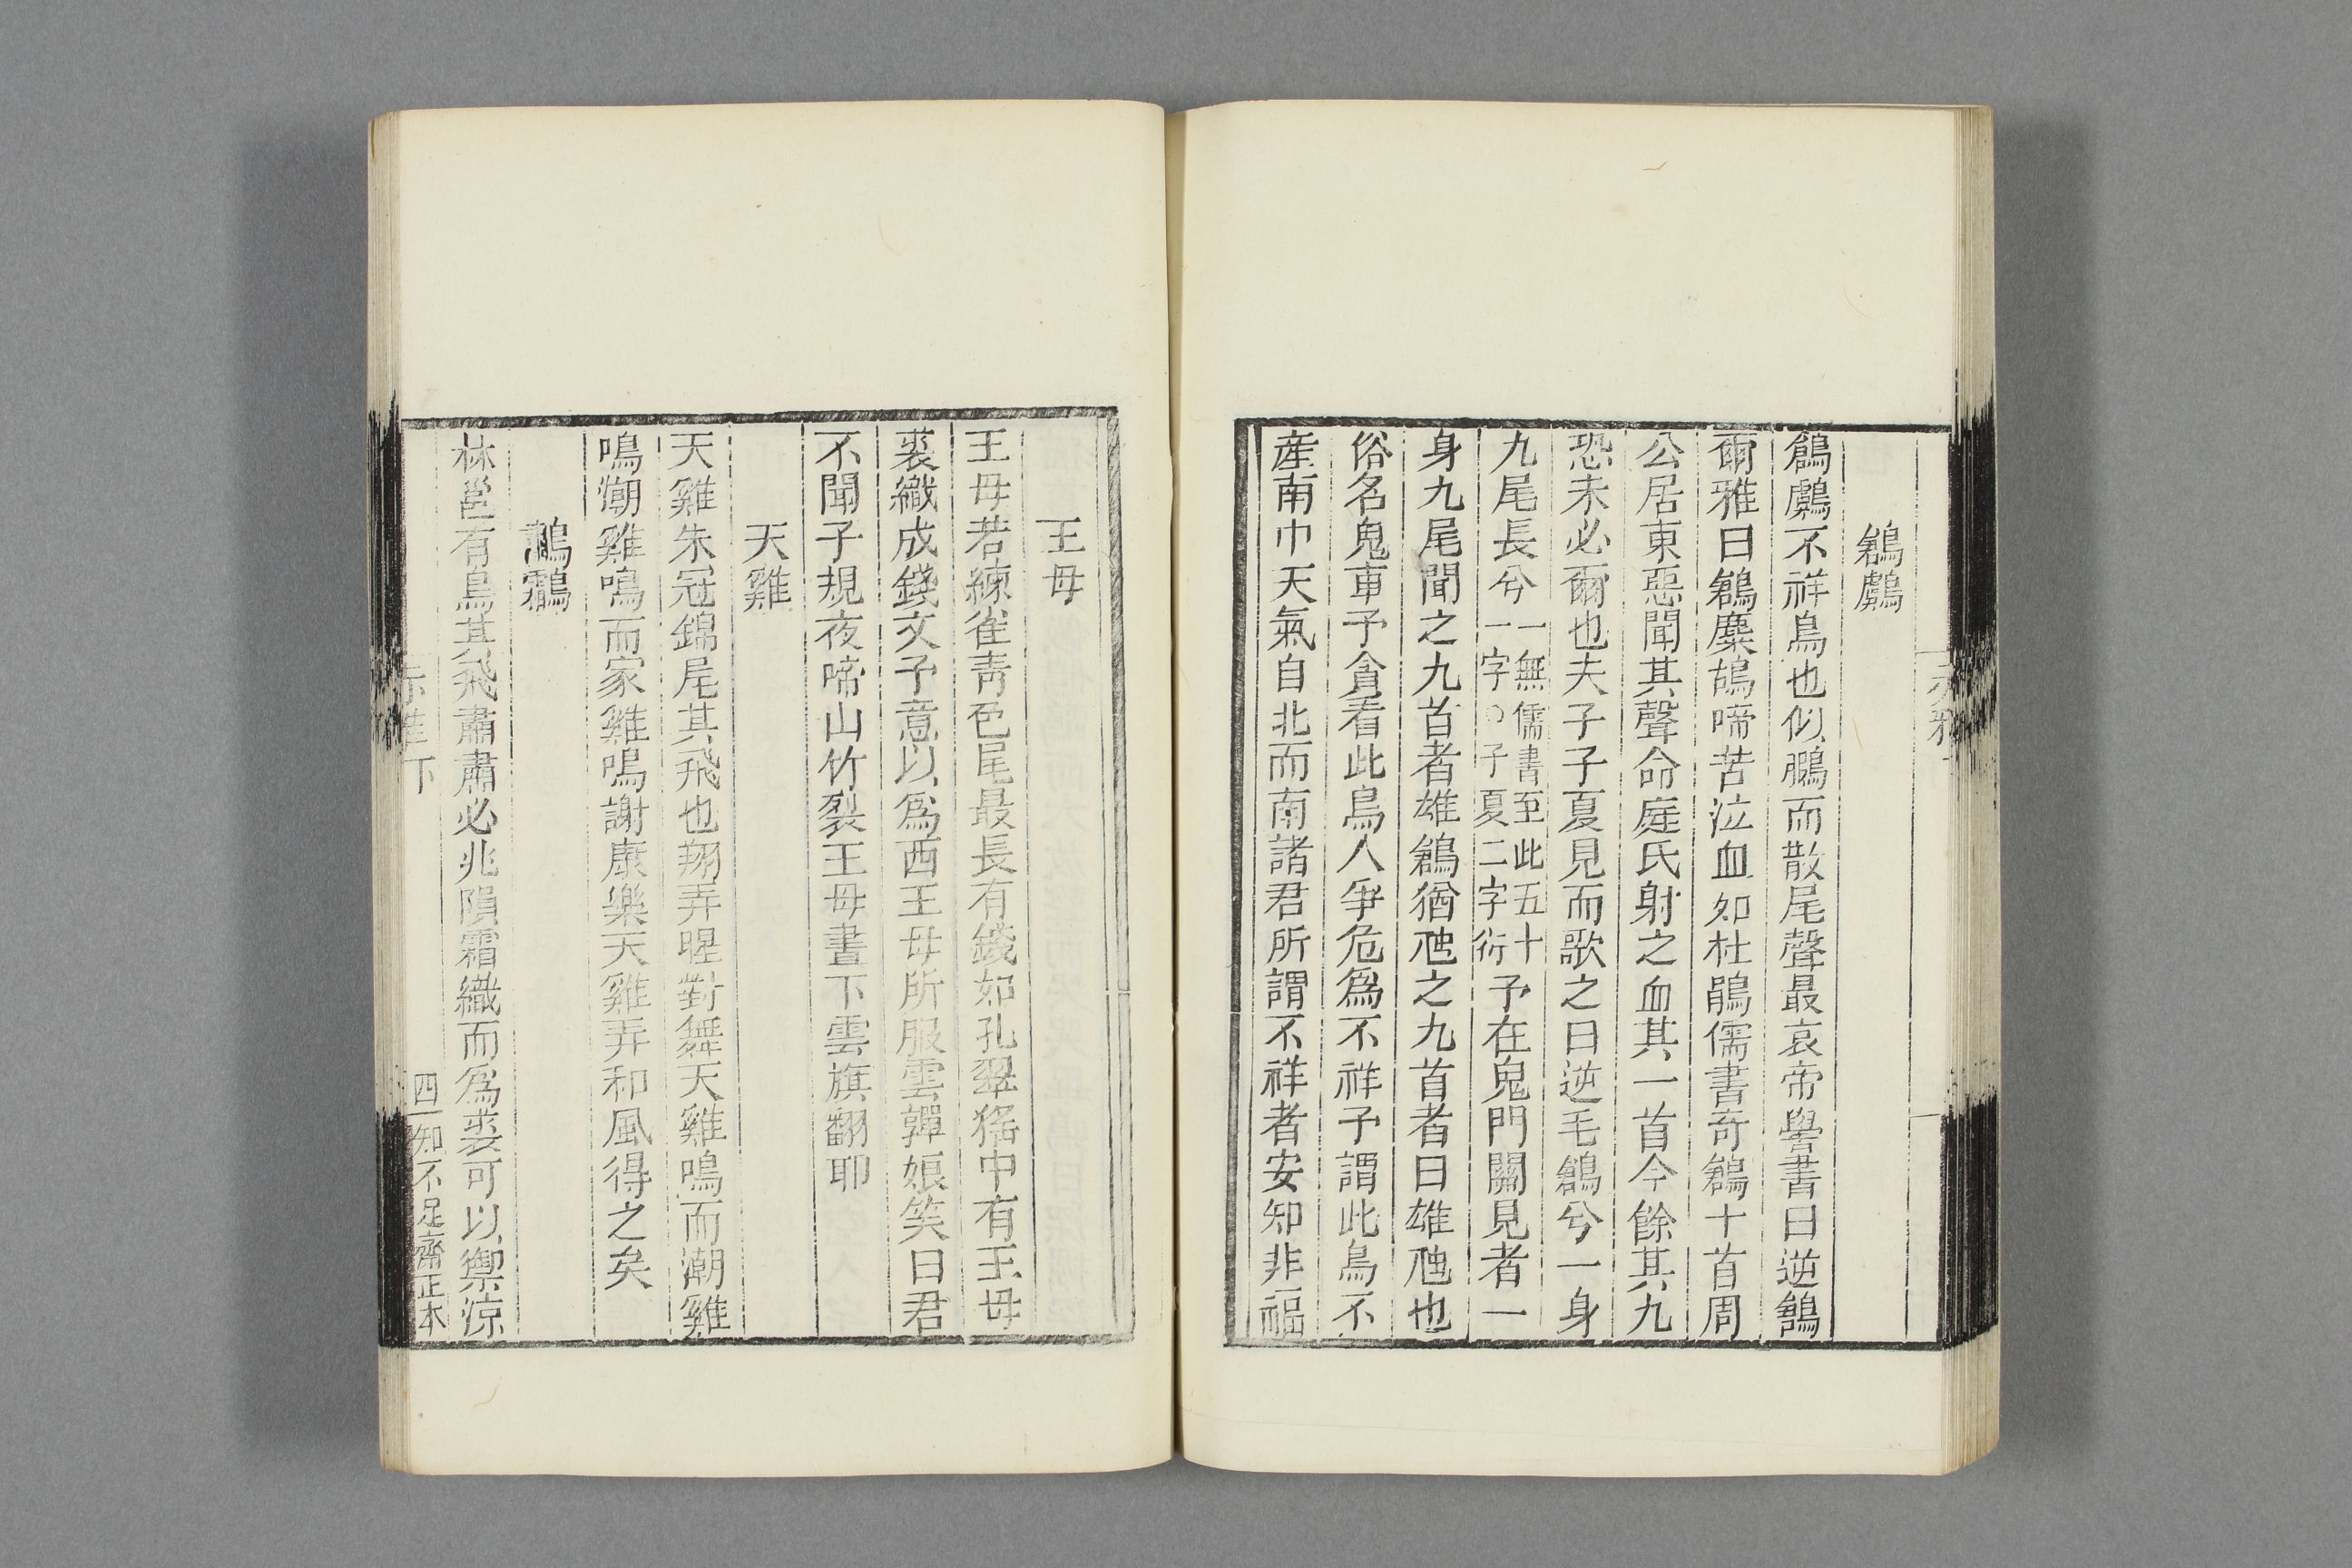 鶬鸆
鶬鸆不祥鳥也似鵩而散尾聲最哀帝嚳書曰逆鶬
爾雅曰鶬麋鴣啼苦泣血如杜鵑儒書奇鶬十首周
公居東惡聞其聲命庭氏射之血其一首今餘其九
恐未必爾也夫子子夏見而歌之曰逆毛鶬兮一身
九尾長兮一無儒書至此五十一字○子夏二字衍予在鬼門關見者一
身九尾聞之九首者雄鶬猶虺之九首者曰雄虺也
俗名鬼車予貪看此鳥人爭危爲不祥予謂此鳥不
産南巾天氣自北而南諸君所謂不祥者安知非福
王母
王母若練雀青色尾最長有錢如孔翠猺中有王母
裘織成錢文予意以爲西王母所服雲韠娘笑曰君
不聞子規夜啼山竹裂王母晝下雲旗翻耶
天雞
天雞朱冠錦尾其飛也翔弄暒對舞天雞鳴而潮雞
鳴潮雞鳴而家雞鳴謝康樂天雞弄和風得之矣
鷫鸘
林邑有鳥其飛肅肅必兆隕霜織而爲裘可以禦涼
赤雅下
四
知不足齋正本